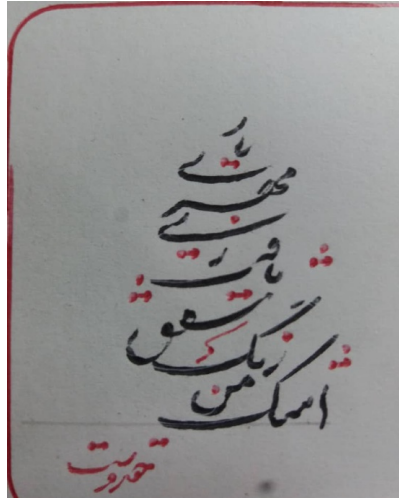 اشک من
رنگ شفق
یافت ز
بی مهری
یار
حقدوست